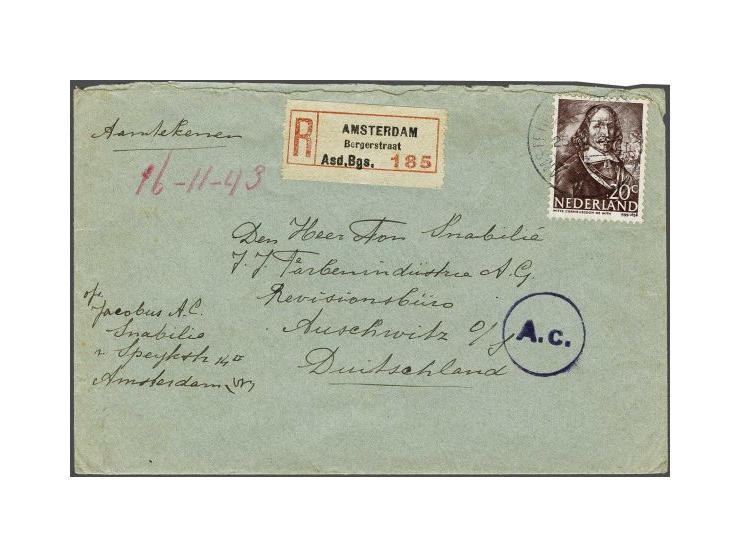 Aantekenen
16-11-43
R
AMSTERDAM
Bergerstraat
Asd,Bgs. 185
20c
NEDERLAND
Den Heer Ton Snabilié
J. J. Farbenindüstrie A.G.
Revisionsbüro
Auschwitz O/S
Duitschland
A.c.
Jacobus A.C.
Snabilie
v Speykstr 14 II
Amsterdam (W)